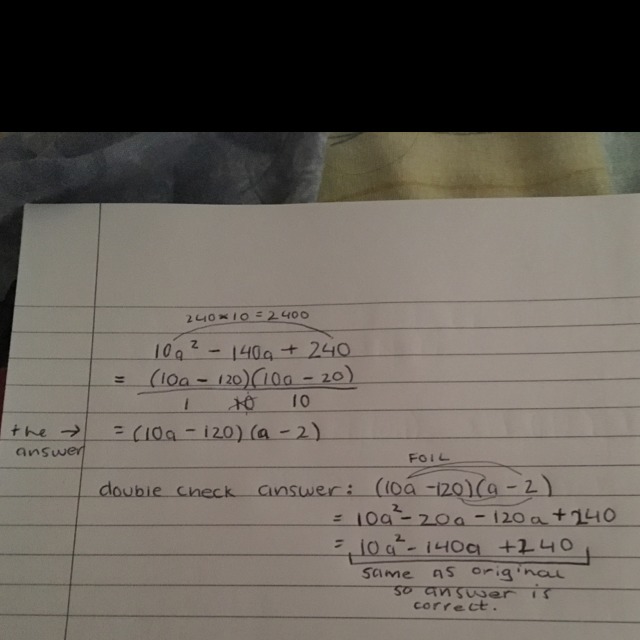 240×10=2400
10a² - 140a + 240
= (10a - 120)(10a - 20)
1 10 10
the → = (10a - 120)(a - 2)
answer
FOIL
double check answer: (10a - 120)(a - 2)
= 10a² - 20a - 120a + 240
= 10a² - 140a + 240
same as original
so answer is
correct.